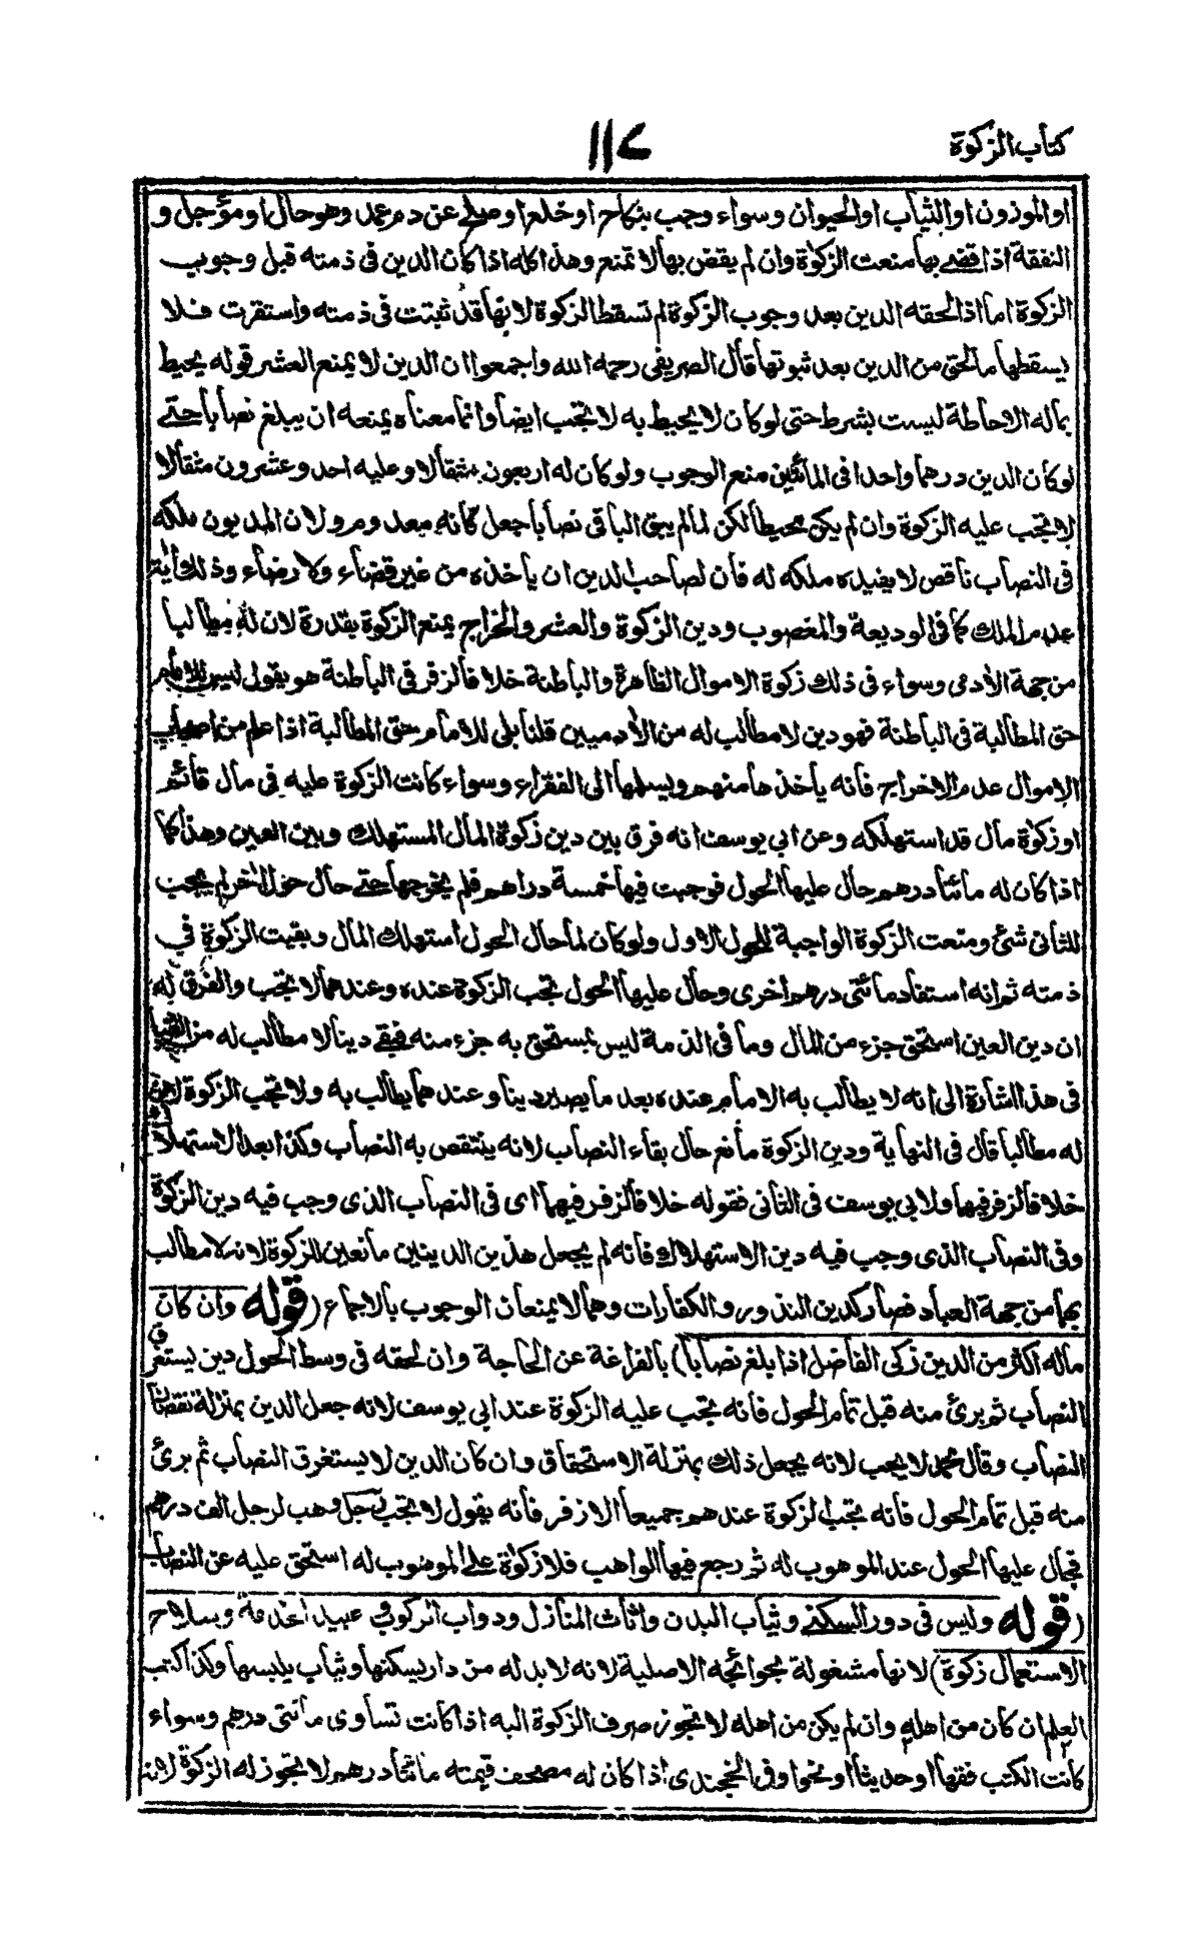 كتاب الزكوة
١١٧
او الموزون او الثياب او الحيوان وسواء وجب بنكاح او خلع او صلح عن دم عمد وهو حال او مؤجل و
النفقة اذا قضى بها منعت الزكوة وان لم يقض بها لا تمنع وهذا كله اذا كان الدين فى ذمته قبل وجوب
الزكوة اما اذا لحقه الدين بعد وجوب الزكوة لم تسقط الزكوة لانها قد ثبتت فى ذمته واستقرت فلا
يسقطها ما لحق من الدين بعد ثبوتها قال الصريفى رحمه الله واجمعوا ان الدين لا يمنع العشر قوله يحيط
بماله الاحاطة ليست بشرط حتى لو كان لا يحيط به لا تجب ايضا وانما معناه يمنعه ان يبلغ نصابا حتى
لو كان الدين درهما واحدا فى المأتين منع الوجوب ولو كان له اربعون مثقالا وعليه احد وعشرون مثقالا
لا تجب عليه الزكوة وان لم يكن محيطا لكن لما لم يبق الباقى نصابا جعل كانه معدوم ولان المديون ملكه
فى النصاب ناقص لا يفيده ملكه له فان لصاحب الدين ان يأخذه من غير قضاء ولا رضاء وذلك اية
عدم الملك كما فى الوديعة والمغصوب ودين الزكوة والعشر والخراج يمنع الزكوة بقدرة لان له مطالبا
من جهة الأدمى وسواء فى ذلك زكوة الاموال الظاهرة والباطنة خلافا لزفر فى الباطنة هو يقول ليس للامام
حق المطالبة فى الباطنة فهو دين لا مطالب له من الأدميين قلنا بلى للامام حق المطالبة اذا علم من اصحاب
الاموال عدم الاخراج فانه يأخذها منهم ويسلمها الى الفقراء وسواء كانت الزكوة عليه فى مال قائم
او زكوة مال قد استهلكه وعن ابي يوسف انه فرق بين دين زكوة المال المستهلك وبين العين وهذا كما
اذا كان له مائتا درهم حال عليها الحول فوجبت فيها خمسة دراهم فلم يخرجها حتى حال حول اخر لم يجب
للثانى شئ ومنعت الزكوة الواجبة للحول الاول ولو كان لما حال الحول استهلك المال وبقيت الزكوة فى
ذمته ثم انه استفاد مائتى درهم اخرى وحال عليها الحول تجب الزكوة عنده وعندهما لا تجب والفرق له
ان دين العين استحق جزء من المال وما فى الذمة ليس بمستحق به جزء منه فبقى دينا لا مطالب له من
فى هذا اشارة الى انه لا يطالب به الامام عنده بعد ما يصير دينا وعندهما يطالب به ولا تجب الزكوة
له مطالبا قال فى النهاية ودين الزكوة مانع حال بقاء النصاب لانه ينتقص به النصاب وكذا بعد الاستهلاك
خلافا لزفر فيها ولابي يوسف فى الثانى فقوله خلافا لزفر فيها اى فى النصاب الذى وجب فيه دين الزكوة
وفى النصاب الذى وجب فيه دين الاستهلاك فانه لم يجعل هذين الدينين مانعين للزكوة لانه لا مطالب
بها من جهة العباد فصار كدين النذور والكفارات وهما لا يمنعان الوجوب بالاجماع (قوله وان كان
ماله اكثر من الدين زكى الفاضل اذا بلغ نصابا) بالفراغه عن الحاجة وان لحقه فى وسط الحول دين يستغرق
النصاب ثم برئ منه قبل تمام الحول فانه تجب عليه الزكوة عند ابى يوسف لانه جعل الدين بمنزلة نقصان
النصاب وقال محمد لا يجب لانه يجعل ذلك بمنزلة الاستحقاق وان كان الدين لا يستغرق النصاب ثم برئ
منه قبل تمام الحول فانه تجب الزكوة عندهم جميعا الا زفر فانه يقول لا تجب رجل وهب لرجل الف درهم
فحال عليها الحول عند الموهوب له ثم رجع فيها الواهب فلا زكوة على الموهوب له استحق عليه عن النصاب
(قوله وليس فى دور السكنى وثياب البدن واثاث المنازل ودواب الركوب عبيد الخدمة وسلاح
الاستعمال زكوة) لانها مشغولة بحوائجه الاصلية لانه لا بد له من دار يسكنها وثياب يلبسها وكذا كتب
العلم ان كان من اهله وان لم يكن من اهله لا تجوز صرف الزكوة اليه اذا كانت تساوى مأتى درهم وسواء
كانت الكتب فقها او حديثا او نحوا وفى الخجندى اذا كان له مصحف قيمته مائتا درهم لا تجوز له الزكوة لانه